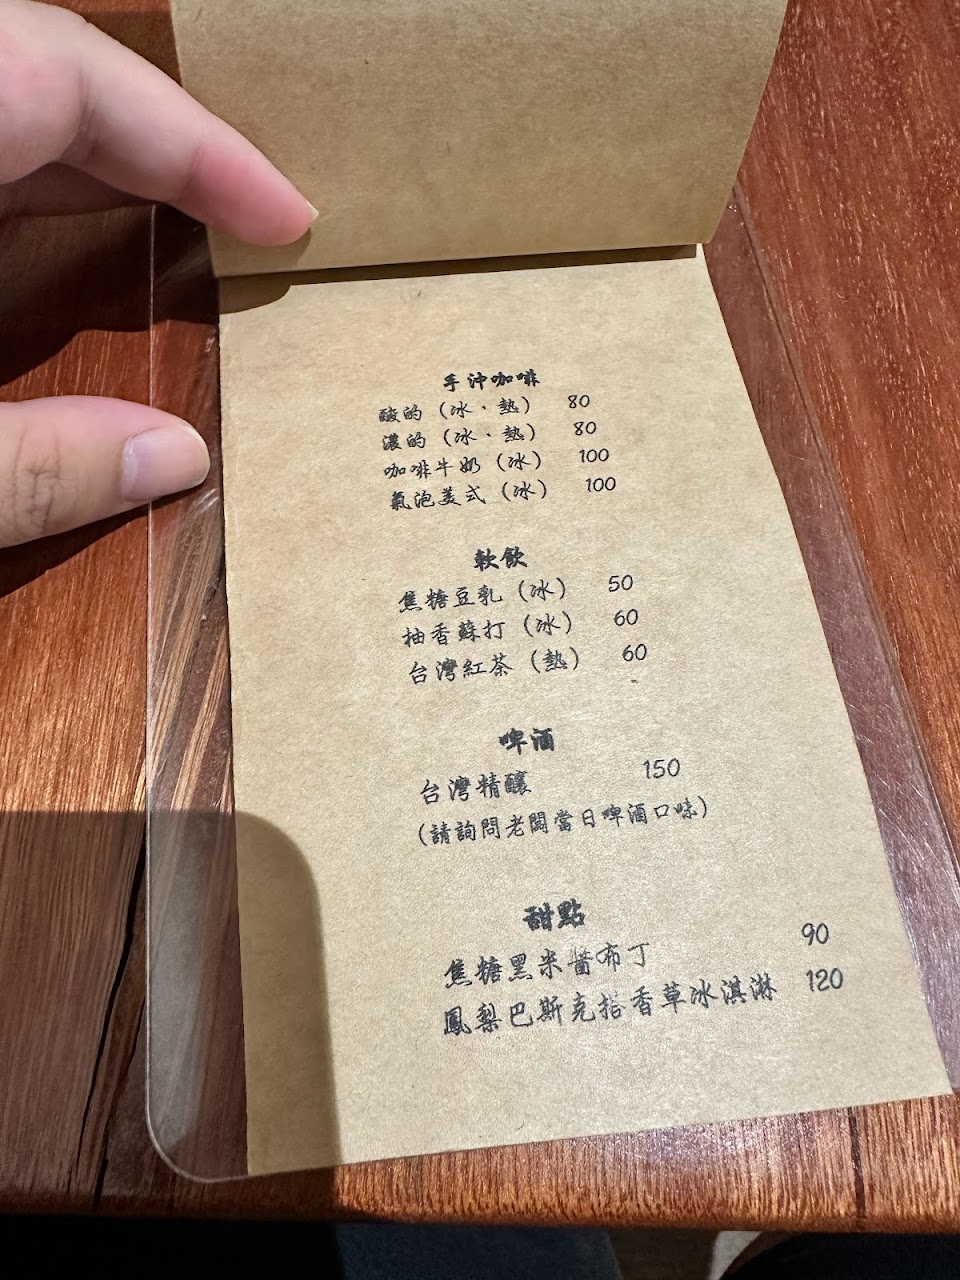 手沖咖啡
酸的（冰·熱） 80
濃的（冰·熱） 80
咖啡牛奶（冰） 100
氣泡美式（冰） 100
軟飲
焦糖豆乳（冰） 50
柚香蘇打（冰） 60
台灣紅茶（熱） 60
啤酒
台灣精釀 150
（請詢問老闆當日啤酒口味）
甜點
焦糖黑米醬布丁 90
鳳梨巴斯克搭香草冰淇淋 120